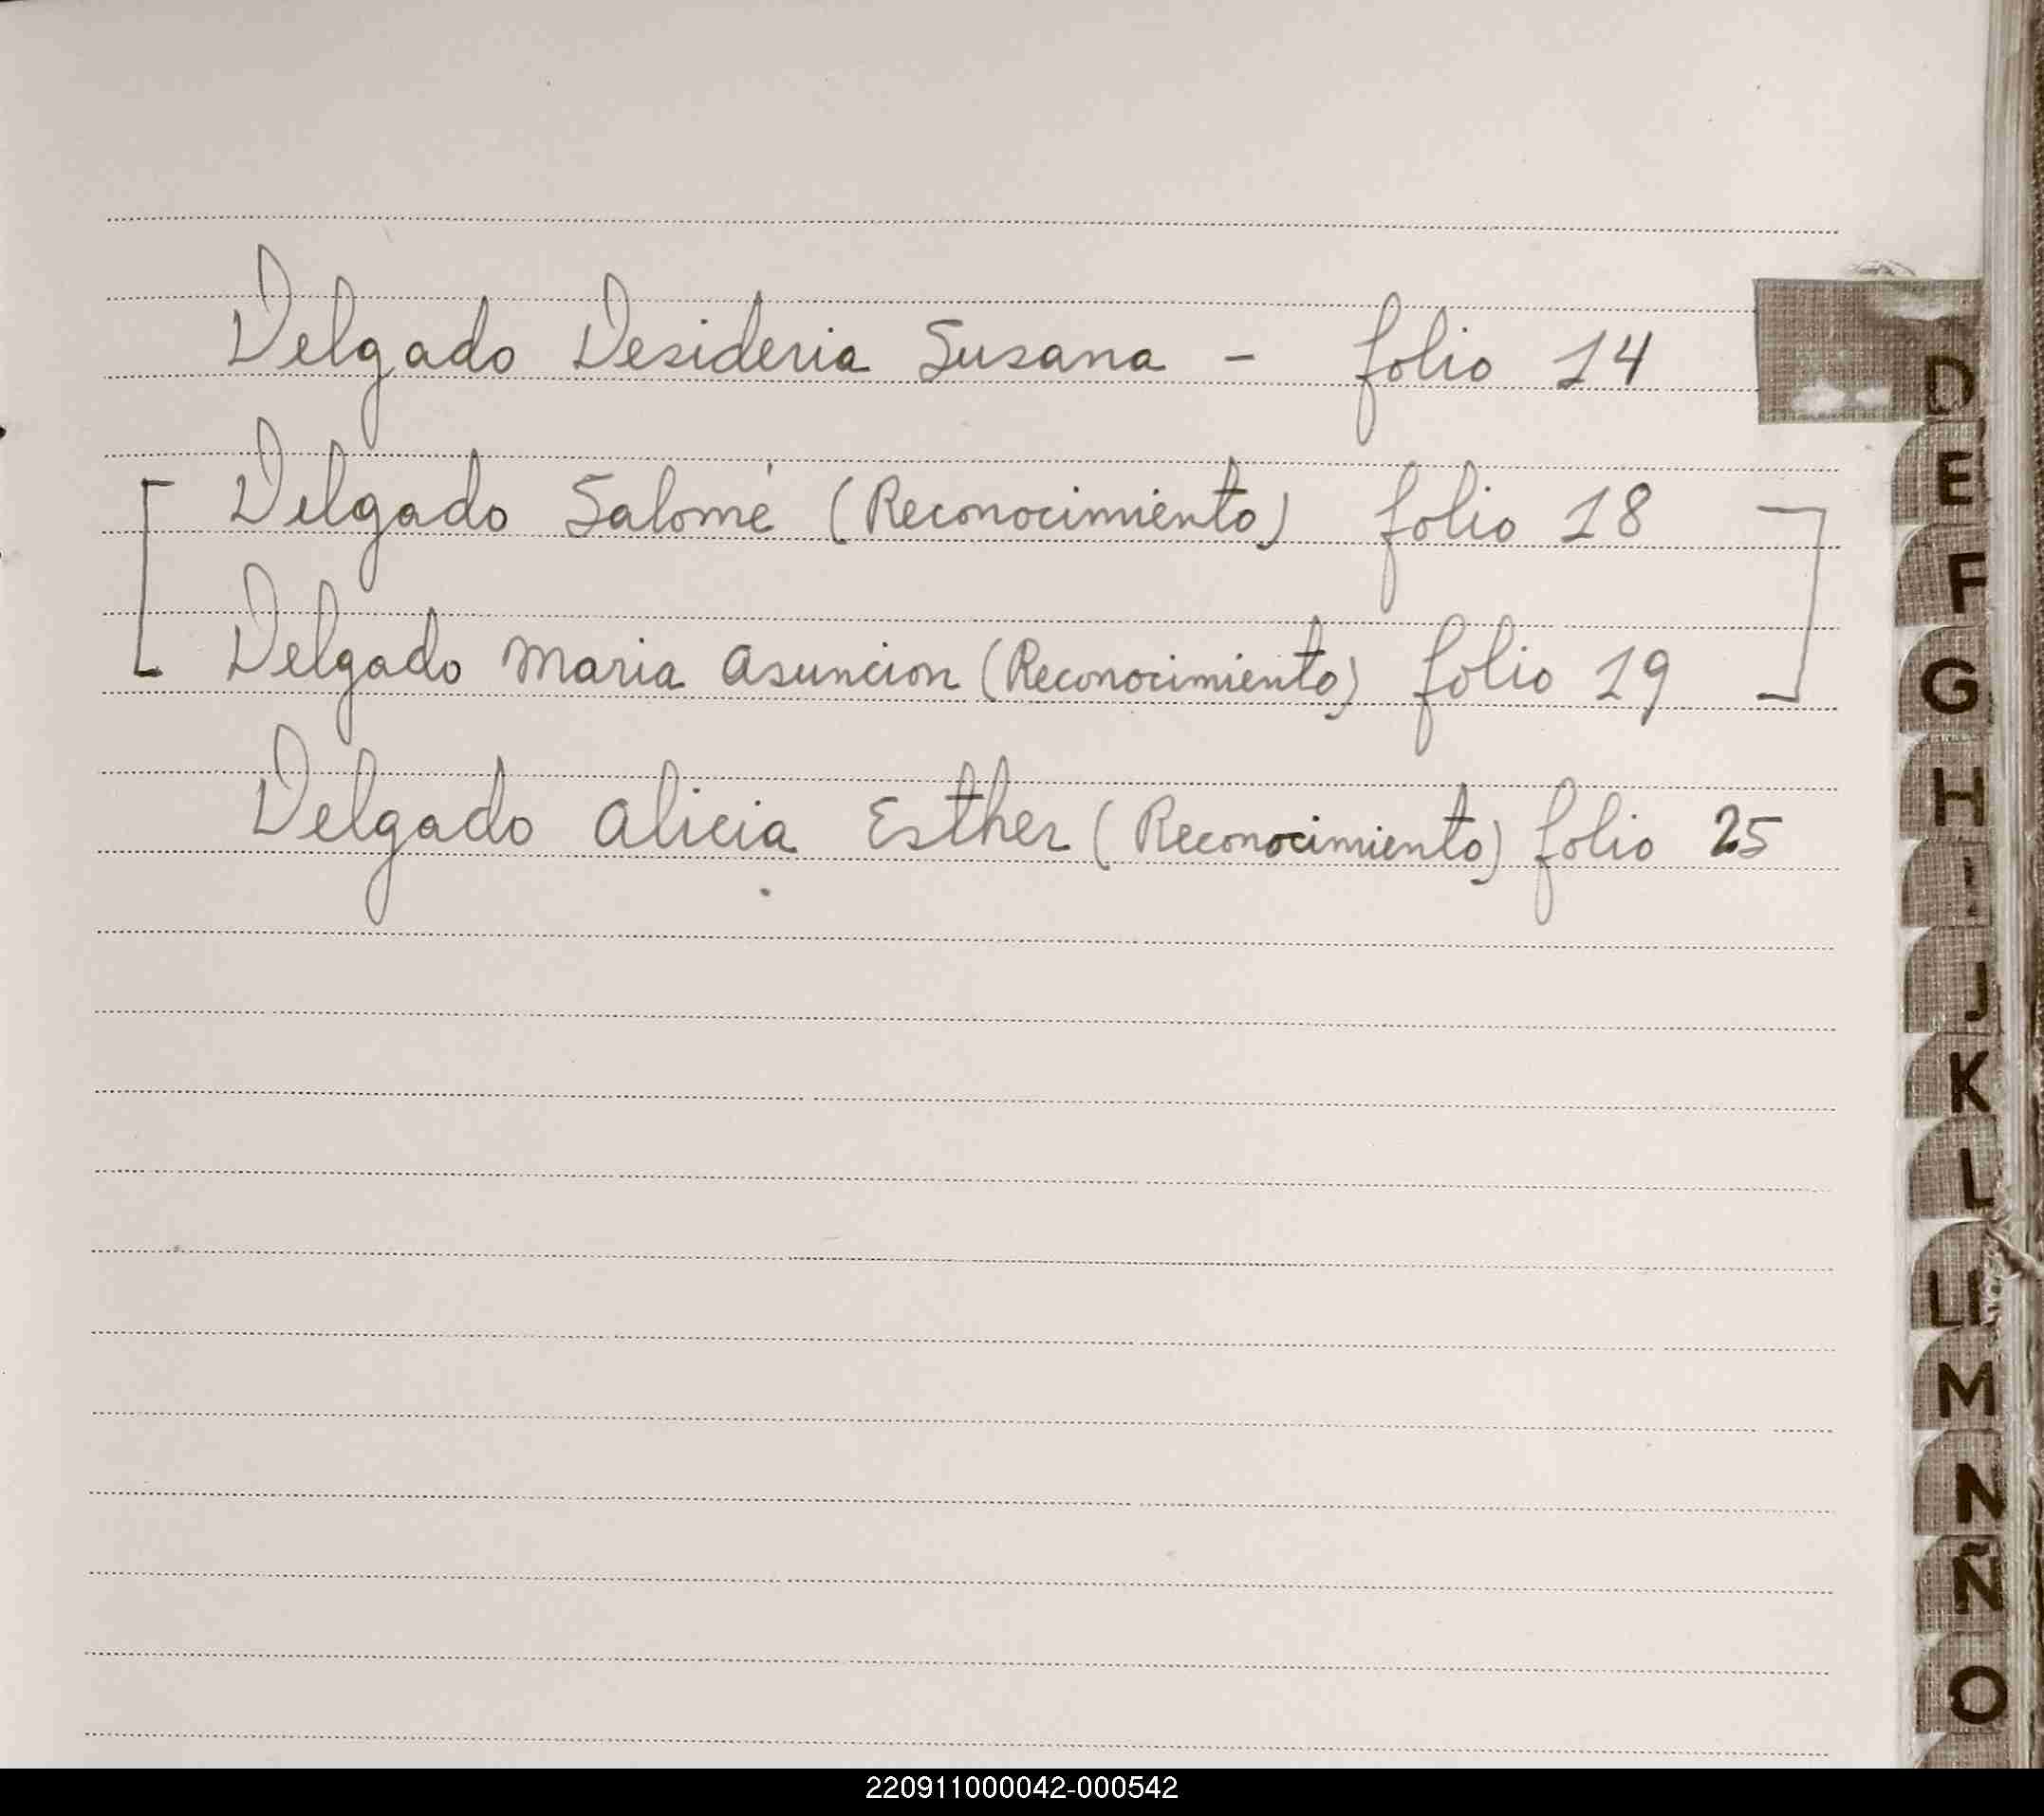 Delgado Desideria Susana - folio 14
[ Delgado Salomé (Reconocimiento) folio 18
Delgado Maria Asuncion (Reconocimiento) folio 19 ]
Delgado Alicia Esther (Reconocimiento) folio 25
D
E
F
G
H
I
J
K
L
LL
M
N
Ñ
O
220911000042-000542